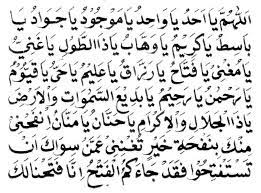 اَللّٰهُمَّ يَا اَحَدُ يَا وَاحِدُ يَا مَوْجُوْدُ يَا جَوَادُ يَا
بَاسِطُ يَا كَرِيْمُ يَا وَهَّابُ يَا ذَا الطَّوْلِ يَا غَنِيُّ
يَا مُغْنِيْ يَا فَتَّاحُ يَا رَزَّاقُ يَا عَلِيْمُ يَا حَيُّ يَا قَيُّوْمُ
يَا رَحْمٰنُ يَا رَحِيْمُ يَا بَدِيْعَ السَّمٰوَاتِ وَالْاَرْضِ
يَا ذَا الْجَلَالِ وَالْاِكْرَامِ يَا حَنَّانُ يَا مَنَّانُ انْفَحْنِيْ
مِنْكَ بِنَفْحَةِ خَيْرٍ تُغْنِنِيْ عَمَّنْ سِوَاكَ اِنْ
تَسْتَفْتِحُوْا فَقَدْ جَاءَكُمُ الْفَتْحُ اِنَّا فَتَحْنَا لَكَ